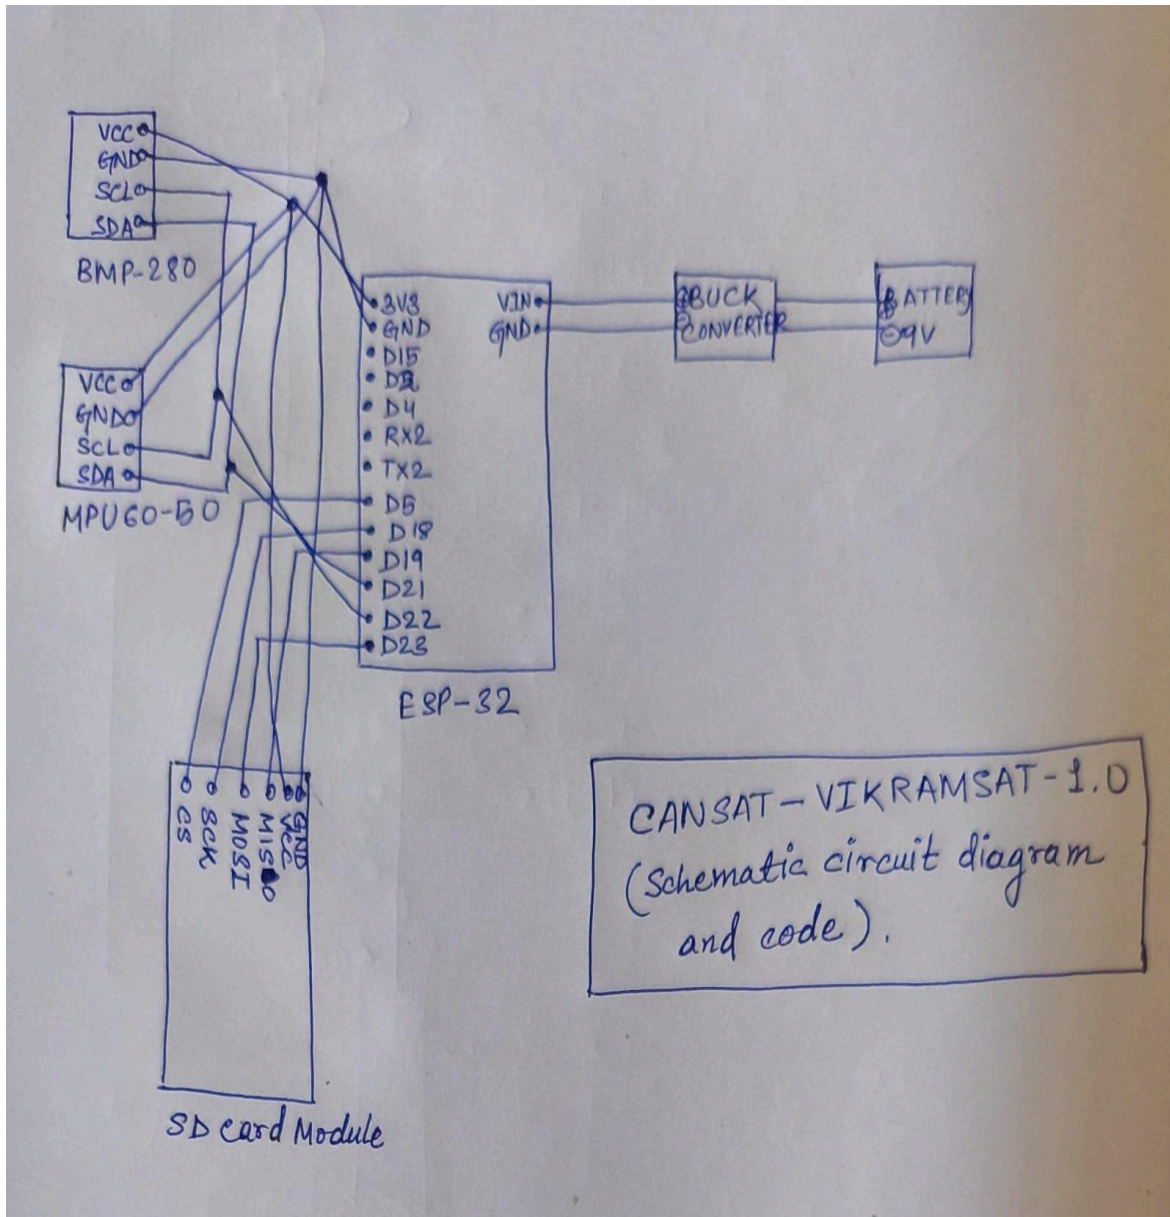 VCC
GND
SCL
SDA
BMP-280
VCC
GND
SCL
SDA
MPU60-50
3V3
GND
D15
D2
D4
RX2
TX2
D5
D18
D19
D21
D22
D23
VIN
GND
ESP-32
BUCK
CONVERTER
BATTERY
9V
CS
SCK
MOSI
MISO
VCC
GND
SD Card Module
CANSAT-VIKRAMSAT-1.0
(Schematic circuit diagram
and code).